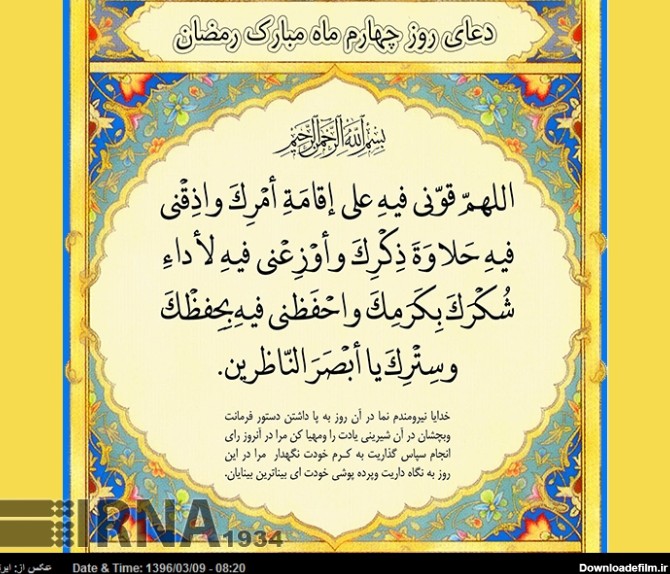 دعای روز چهارم ماه مبارک رمضان
بِسْمِ اللَّهِ الرَّحْمَنِ الرَّحِيمِ
اللهمّ قوّنی فیهِ علی إقامَةِ أمْرِكَ واذِقْنی
فیهِ حَلاوَةَ ذِكْرِكَ وأوْزِعْنی فیهِ لأداءِ
شُكْرَكَ بِكَرَمِكَ واحْفَظنی فیهِ بِحِفظْكَ
وسِتْرِكَ یا أبْصَرَ النّاظرین.
خدایا نیرومندم نما در آن روز به پا داشتن دستور فرمانت
وبچشان در آن شیرینی یادت را ومهیا کن مرا در آنروز رای
انجام سپاس گذاریت به کـرم خودت نگهدار مرا در این
روز به نگاه داریت وپرده پوشی خودت ای بیناترین بینایان.
IRNA 1934
عکس از: ایرنا Date & Time: 1396/03/09 - 08:20 Downloadefilm.ir